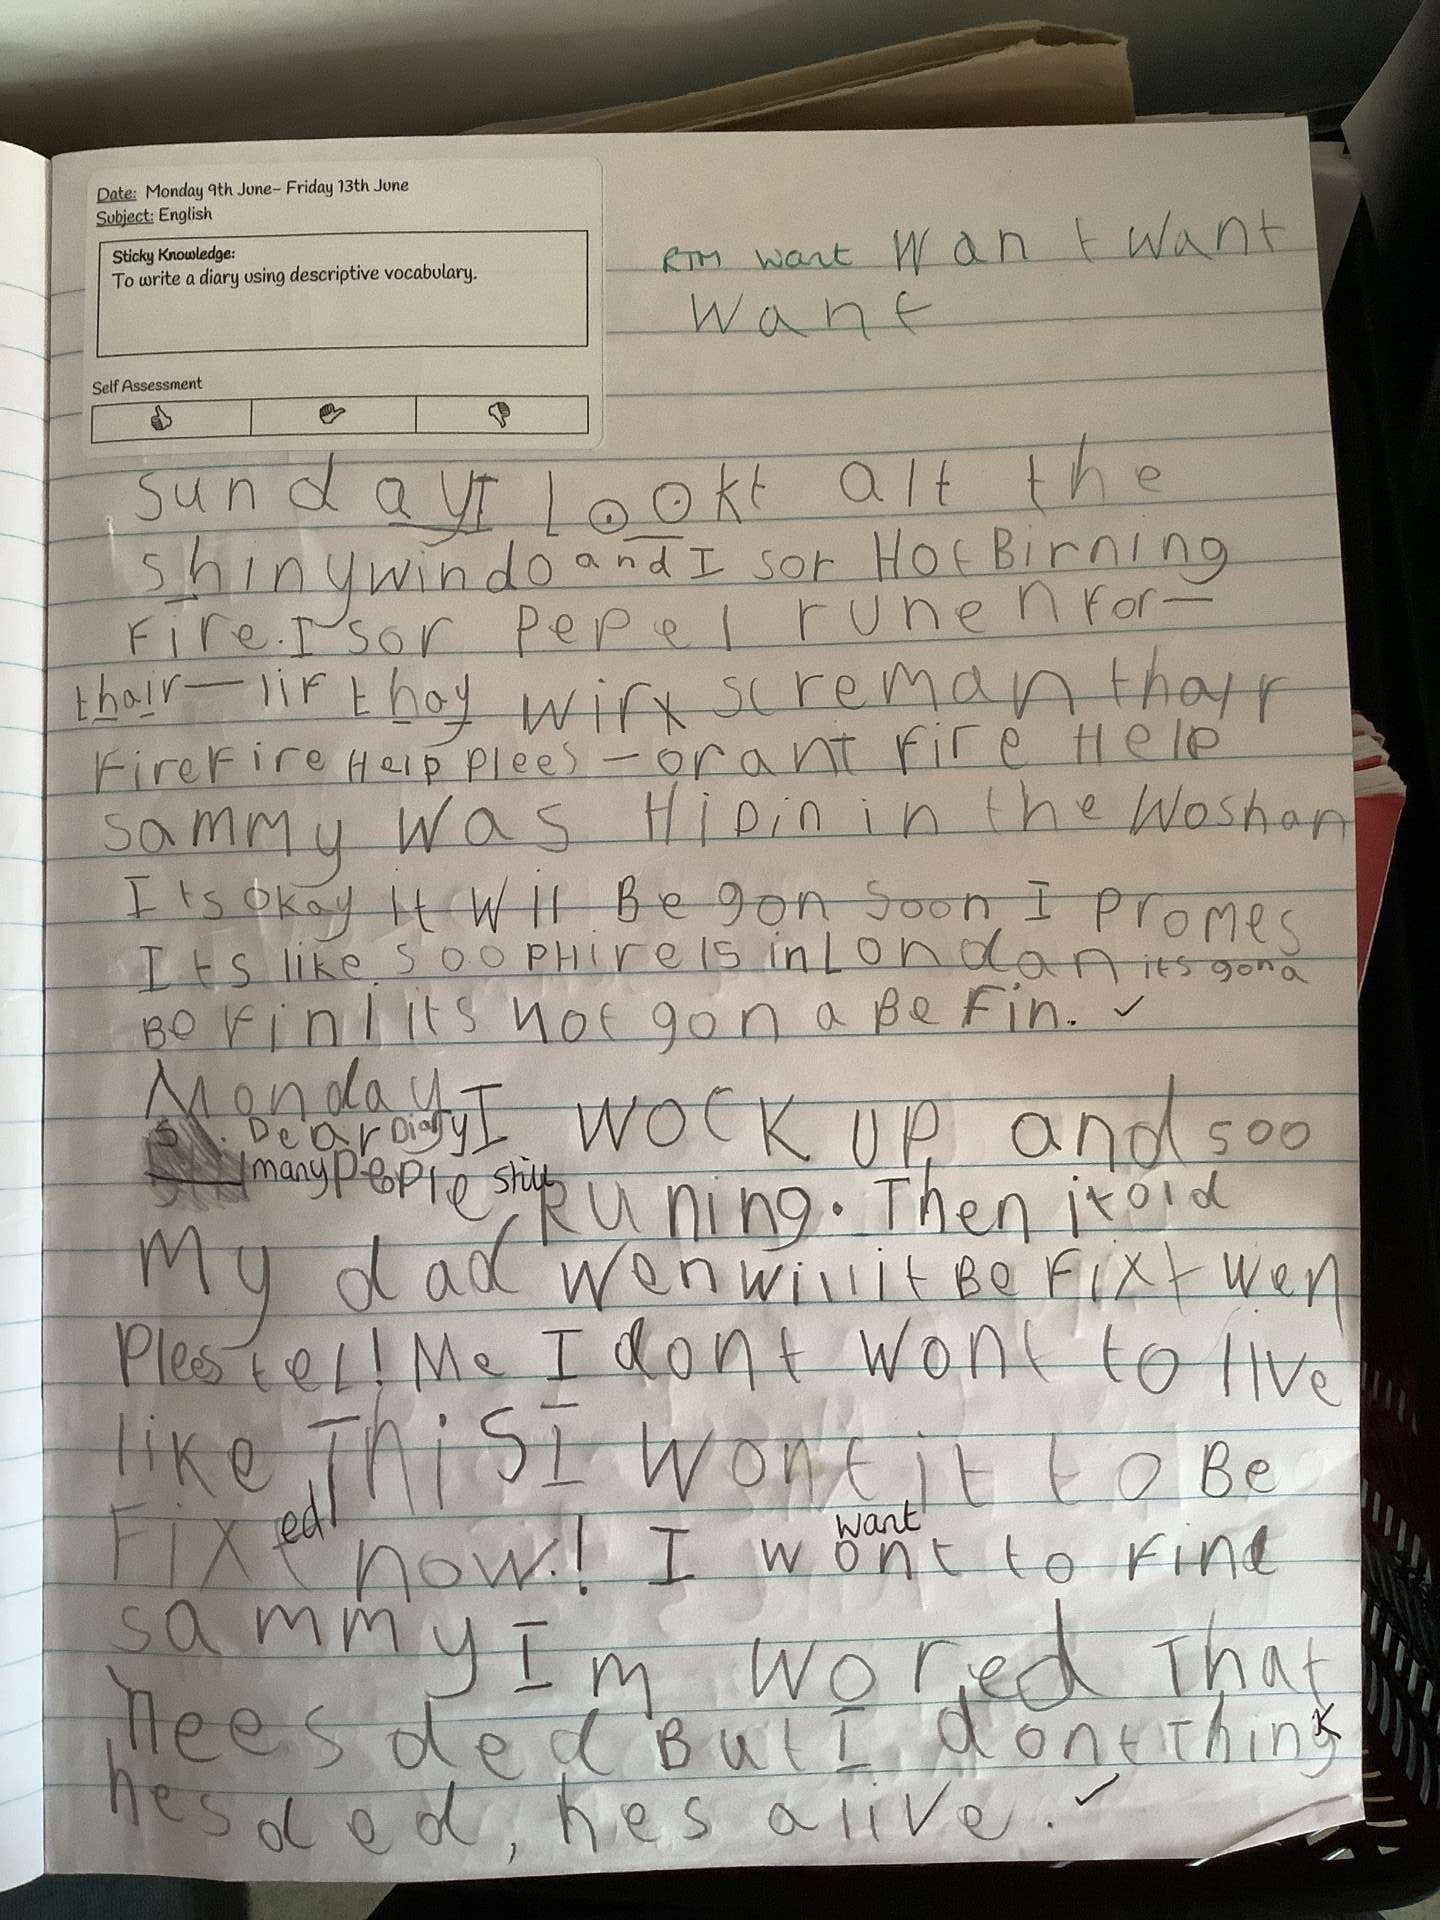 Date: Monday 9th June- Friday 13th June
Subject: English
Sticky Knowledge:
To write a diary using descriptive vocabulary.
Self Assessment
RTM want Want Want
Want
Sunday I Lookt alt the
shiny windo and I sor Hot Birning
Fire. I sor Pepel runen For—
thair— lif thay wirx screman thayr
Fire Fire Help Plees — orant Fire Help
Sammy was Hidin in the Woshan
Its okay it Will Be gon Soon I Promes
Its like soo PHire is in Londan its gona
Be Fin! its not gona Be Fin. ✓
Monday
Dear Diary I wock up and soo
many people still Runing. Then i told
My dad wen will it Be Fixt wen
Plees tel! Me I dont wont to live
like This I wont it to Be
Fixt ed now! I wont want to Find
Sammy Im wored That
hees ded But I dont Think
hes ded, hes alive. ✓